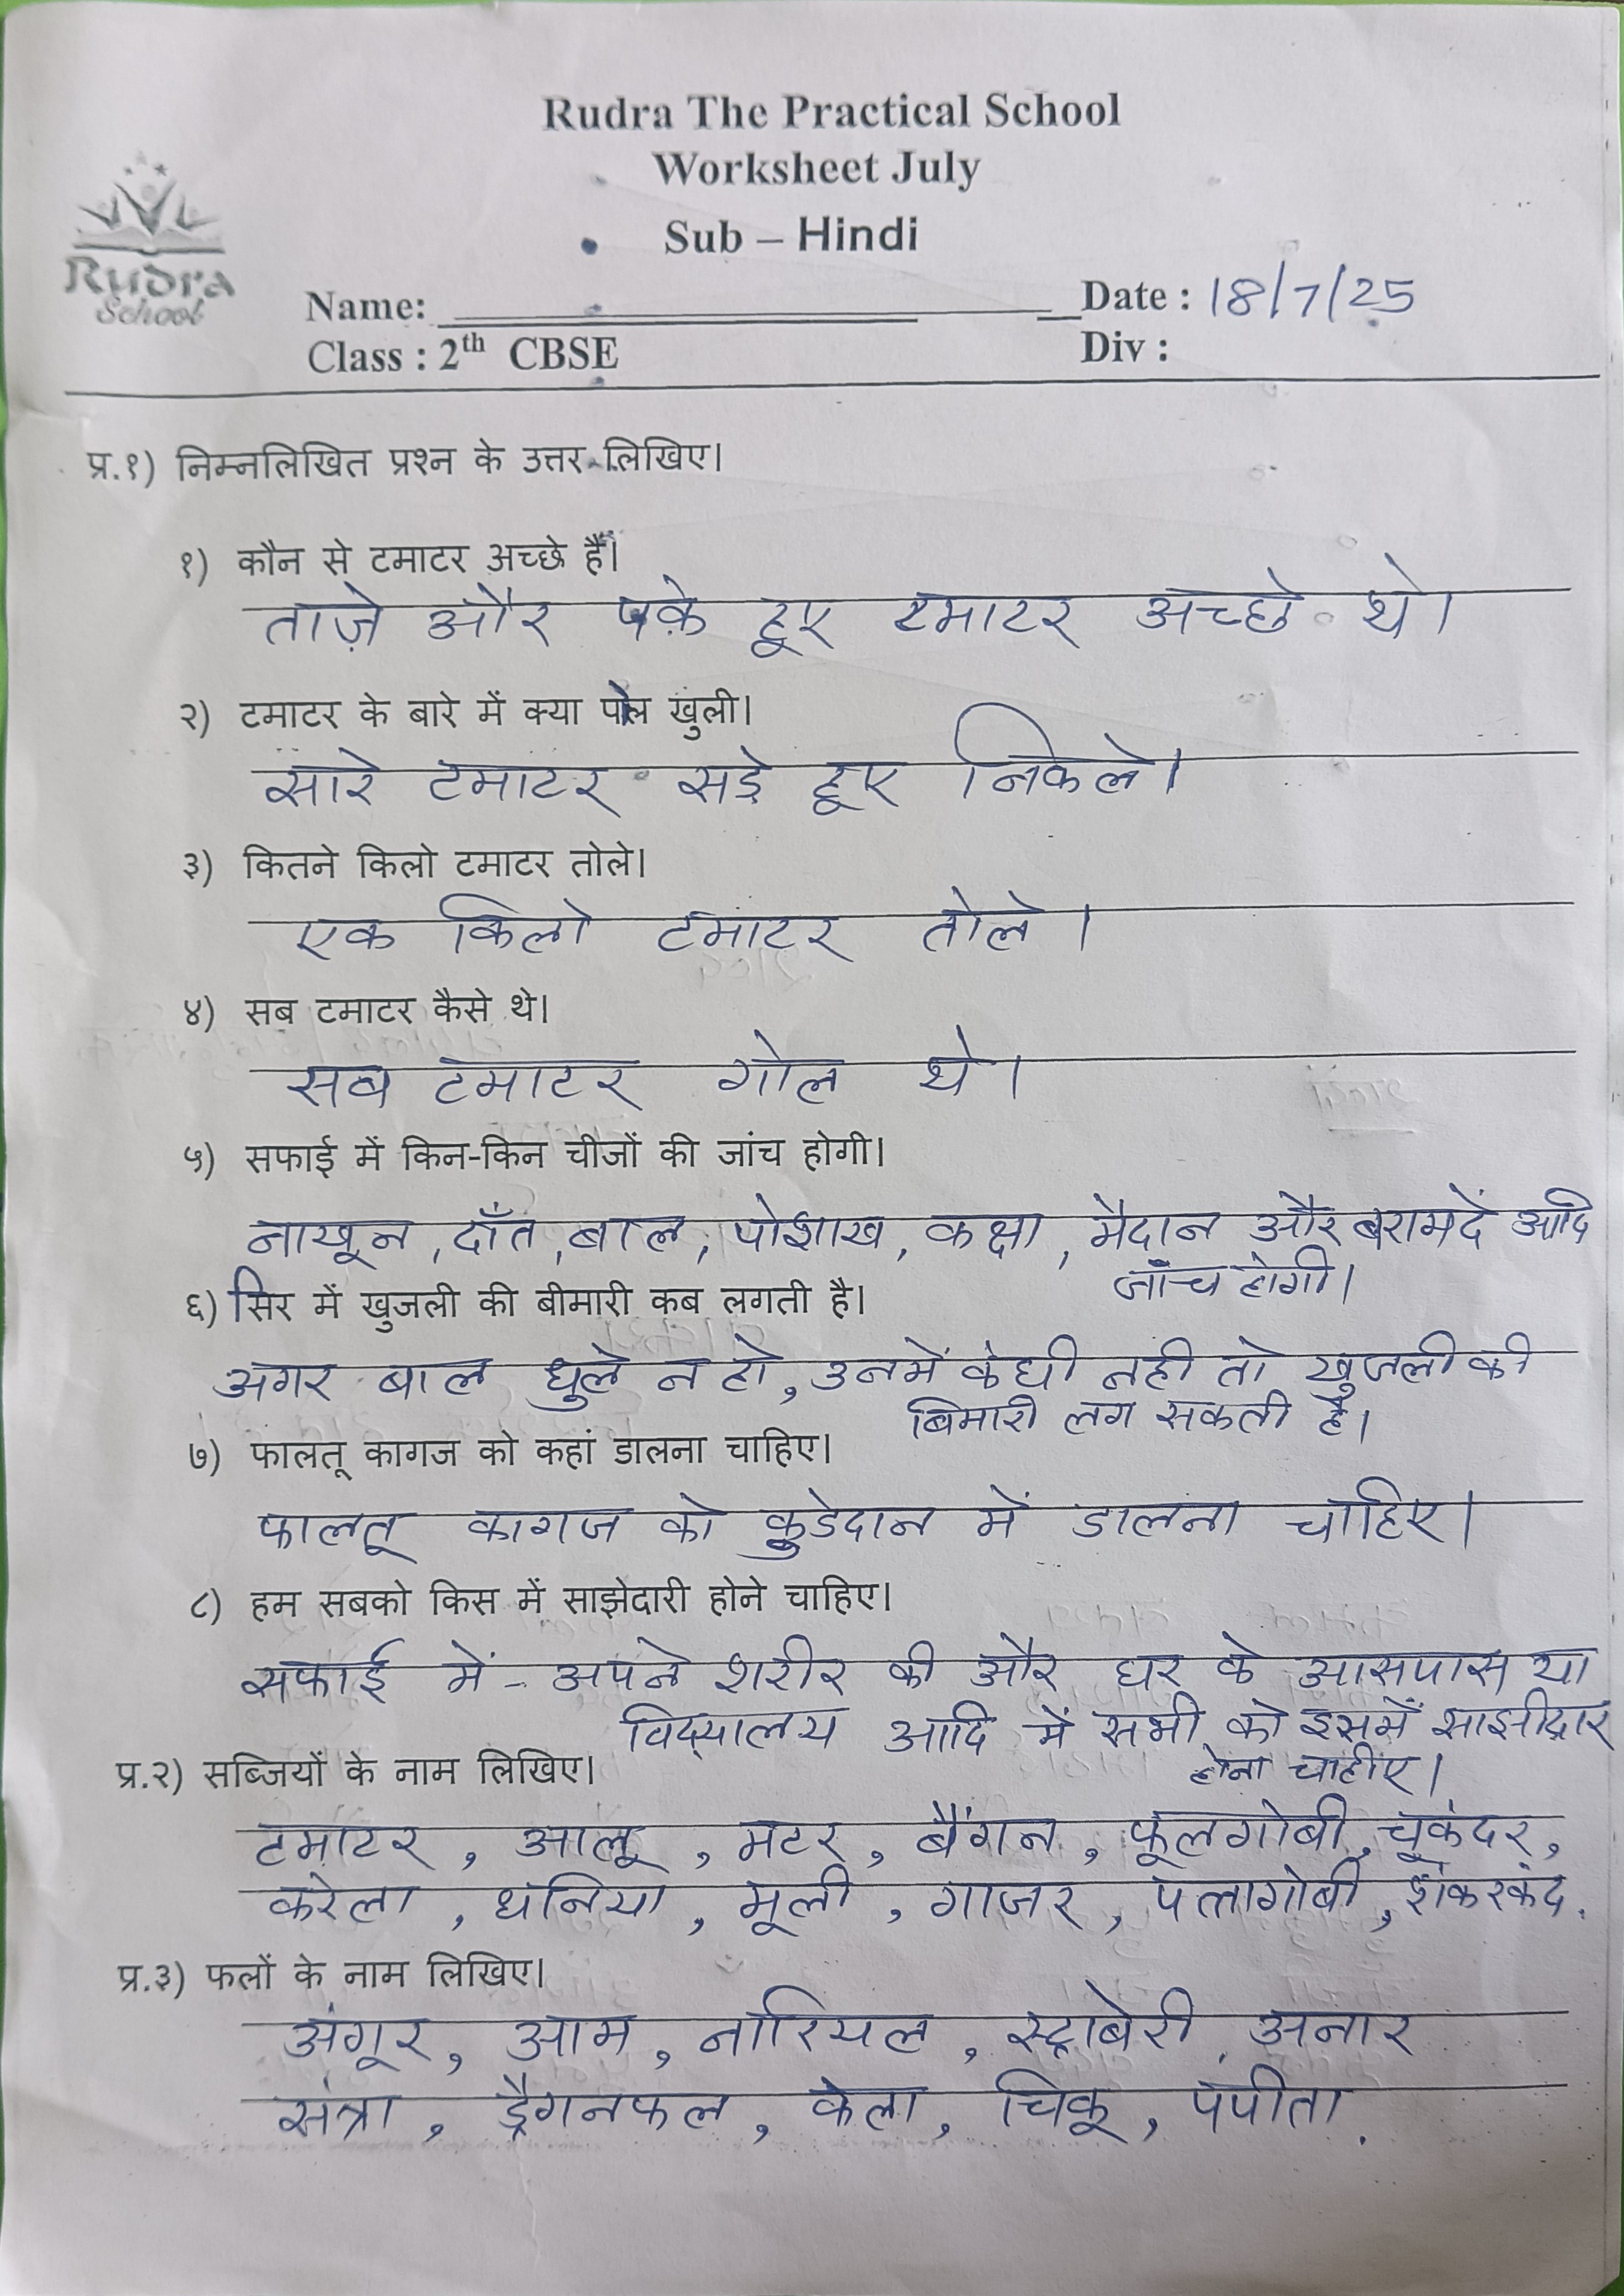 Rudra The Practical School
Worksheet July
Sub – Hindi
Rudra
School
Name: Date : 18/7/25
Class : 2th CBSE Div :
प्र.१) निम्नलिखित प्रश्न के उत्तर लिखिए।
१) कौन से टमाटर अच्छे हैं।
ताज़े और पके हूए टमाटर अच्छे थे।
२) टमाटर के बारे में क्या पोल खुली।
सारे टमाटर सड़े हूए निकले।
३) कितने किलो टमाटर तोले।
एक किलो टमाटर तोले।
४) सब टमाटर कैसे थे।
सब टमाटर गोल थे।
५) सफाई में किन-किन चीजों की जांच होगी।
नाखून, दाँत, बाल, पोशाख, कक्षा, मैदान और बरामदें आदि
जाँच होगी।
६) सिर में खुजली की बीमारी कब लगती है।
अगर बाल धुले न हो, उनमें कंघी नही तो खुजली की
बिमारी लग सकती है।
७) फालतू कागज को कहां डालना चाहिए।
फालतू कागज को कुडेदान में डालना चाहिए।
८) हम सबको किस में साझेदारी होने चाहिए।
सफाई में - अपने शरीर की और घर के आसपास या
विद्यालय आदि में सभी को इसमें साझीदार
होना चाहीए।
प्र.२) सब्जियों के नाम लिखिए।
टमाटर, आलू, मटर, बैंगन, फूलगोबी, चूकंदर,
करेला, धनिया, मूली, गाजर, पत्तागोबी, शंकरकंद.
प्र.३) फलों के नाम लिखिए।
अंगूर, आम, नारियल, स्ट्राबेरी, अनार
संत्रा, ड्रैगनफल, केला, चिकू, पपीता.